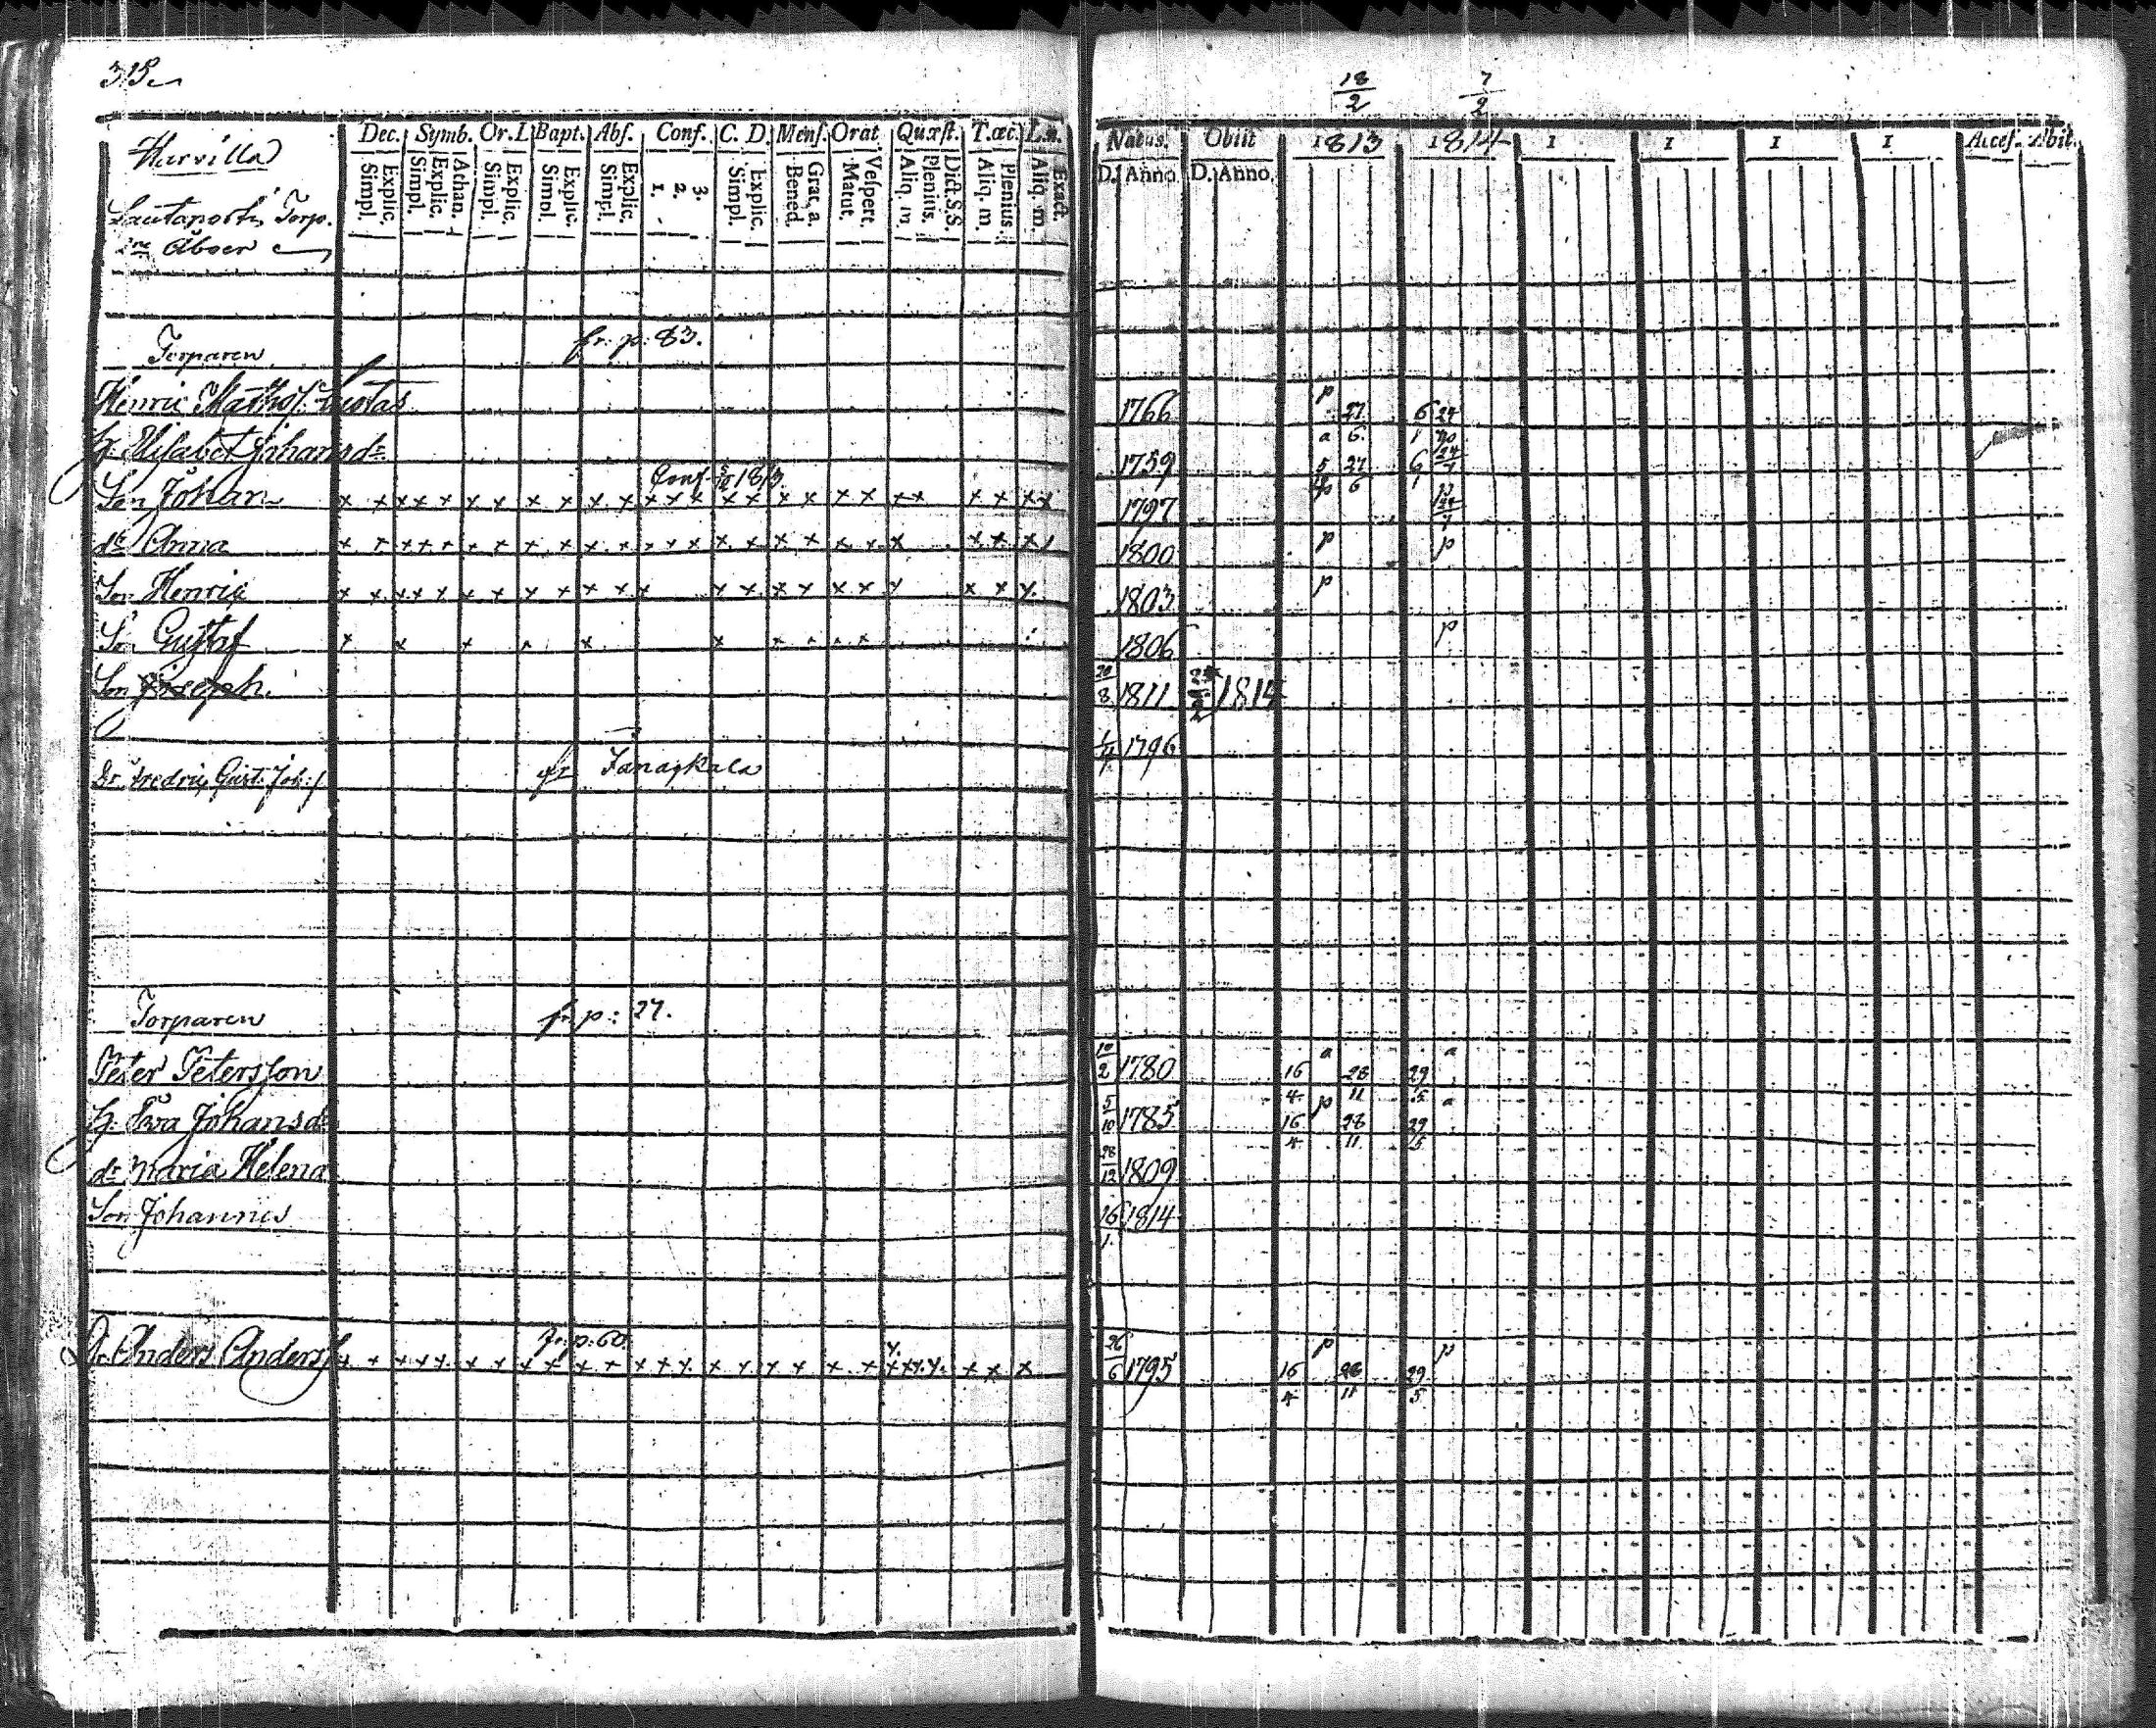 315.
18/2 7/2
Harvilla
Lautaporti Torp.
2ne Åboer
Dec. Symb. Or. D Bapt. Abs. Conf. C. D. Mens. Orat. Quæst. T. œc. L. n.
Explic. Simpl. Athan. Explic. Simpl. Explic. Simpl. Explic. Simpl. Explic. Simpl. 3. 2. 1. Explic. Simpl. Grat. a. Bened. Vespert. Matut. Dict. S.S. Plenius. Aliq. m. Plenius Aliq. m. Exact. Aliq. m.
Natus. Obiit 1813 1814 1 1 1 1 Acces. Abit.
D. Anno D. Anno.
Torparen fr. p: 83.
Henric Mathss. 1766 p 27 6 24
h. Elisabet Johansdr 1759 a 6 1
Conf. 1813
Son Johan 1797
dr Anna 1800 p p
Son Henric 1803 p
Son Gustaf 1806 p
Son Joseph. 20/8 1811 1814
Dr. Fredric Gust. Joh:s fr Janakkala 1796
Torparen fr. p: 27.
Peter Petersson 10/2 1780 a a
16/4 28/11 29/5
h. Eva Johansdr 5/10 1785 p a
16/4 28/11 29/5
dr Maria Helena 28/12 1809
Son Johannes 16/1 1814
Dr Anders Anderss. Fr. p: 60. 26/6 1795 p p
16/4 28/11 29/5